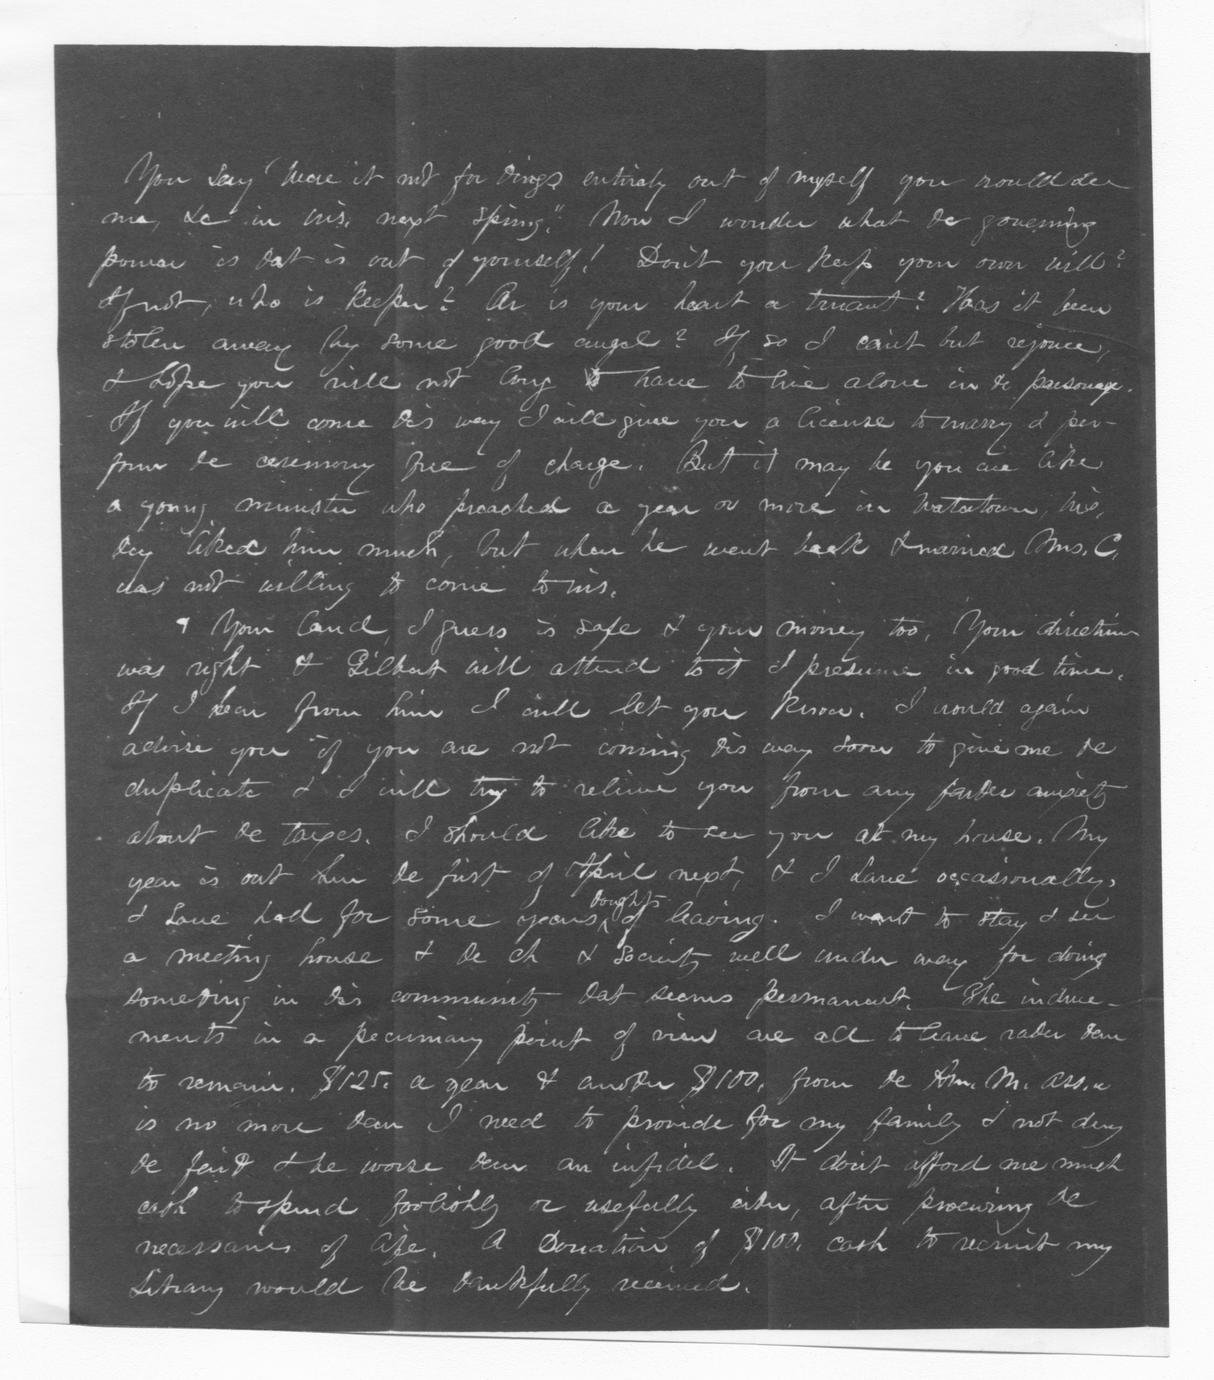 You say "were it not for things entirely out of myself you would see
me, &c in Wis. next Spring". Now I wonder what the governing
power is that is out of yourself! Don't you keep your own will?
If not, who is keeper? Or is your heart a truant? Has it been
stolen away by some good angel? If so I can't but rejoice,
& hope you will not long to have to live alone in the parsonage.
If you will come this way I will give you a license to marry & per-
form the ceremony free of charge. But it may be you are like
a young minister who preached a year or more in Watertown, Wis,
they liked him much, but when he went back & married Mrs. C.
was not willing to come to Wis.
Your land, I guess is safe & your money too. Your direction
was right & Gilbert will attend to it I presume in good time.
If I hear from him I will let you know. I would again
advise you if you are not coming this way soon to give me the
duplicate & I will try to relieve you from any farther anxiety
about the taxes. I should like to see you at my house. My
year is out here the first of April next, & I have occasionally,
& have had for some years, thoughts of leaving. I want to stay & see
a meeting house & the ch & society well under way for doing
something in this community that seems permanent. The induce-
ments in a pecuniary point of view are all to leave rather than
to remain. $125. a year & another $100. from the Am. M. Ass.
is no more than I need to provide for my family & not deny
the faith & be worse than an infidel. It don't afford me much
cash to spend foolishly or usefully either, after procuring the
necessaries of life. A Donation of $100. cash to recruit my
Library would be thankfully received.